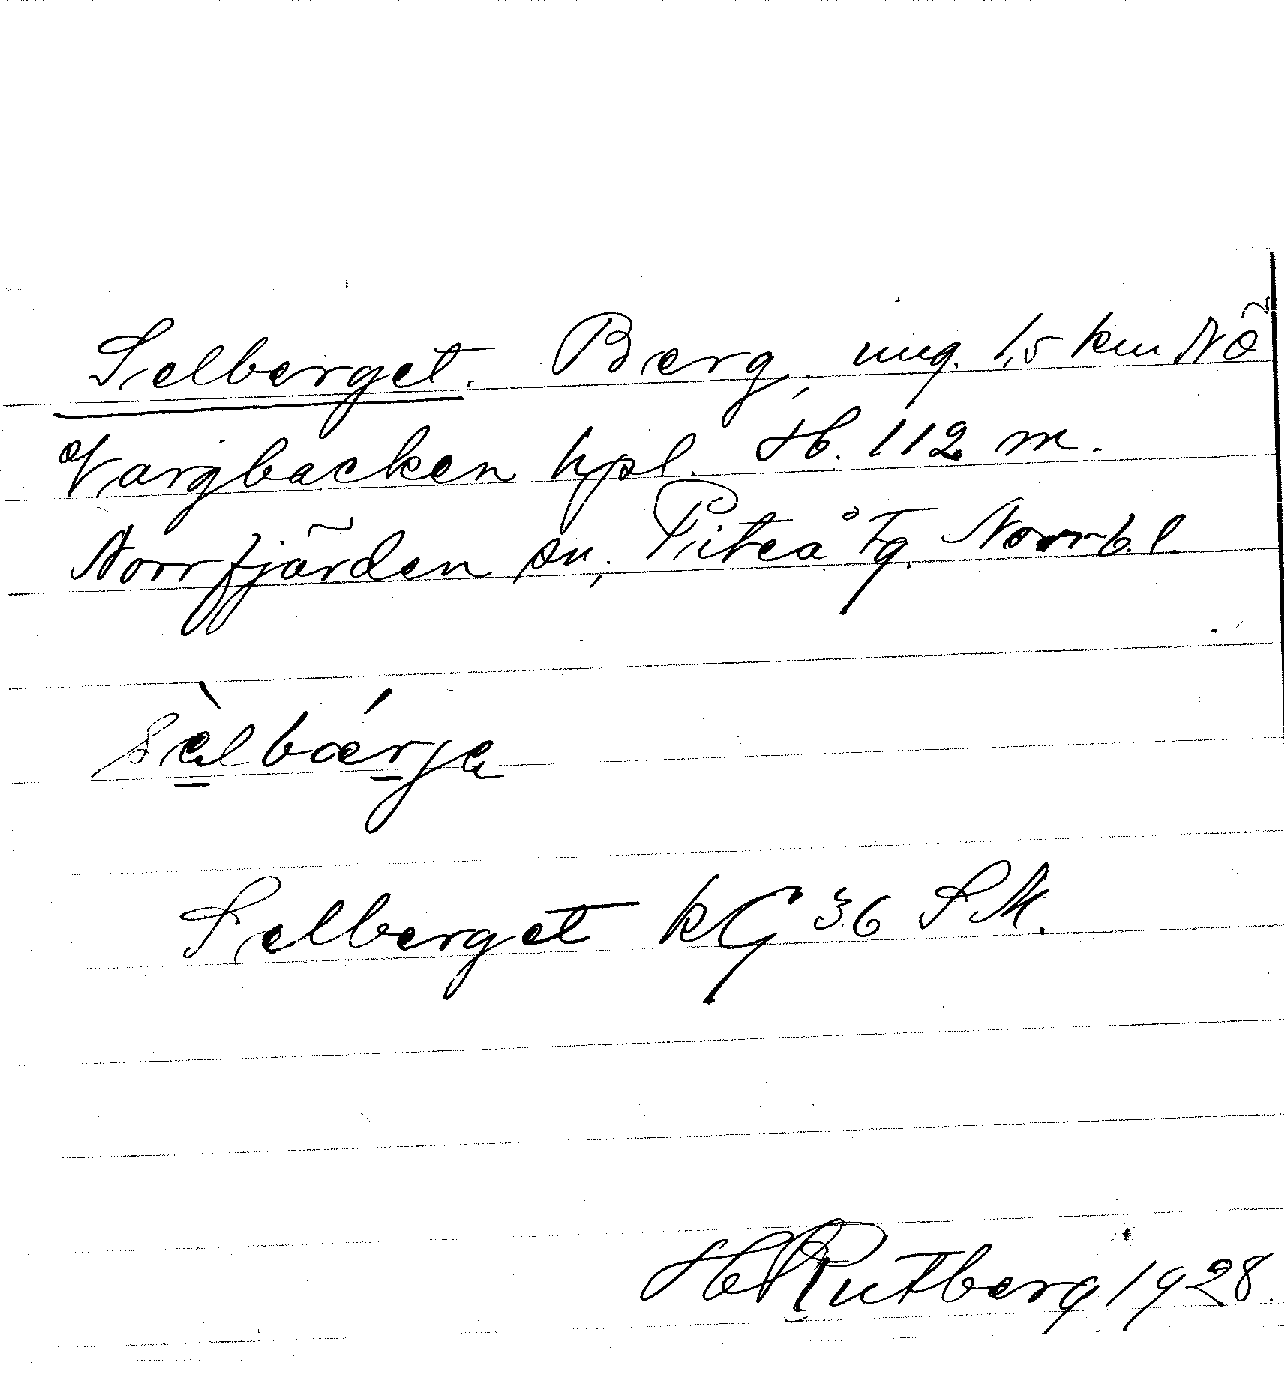 Selberget. Berg, ung. 1,5 km NÖ
Vargbacken hpl. H. 112 m.
Norrfjärden sn, Piteå Tg. Norrb. l.
sèlbǽrja
Selberget kG 36 SM.
H Rutberg 1928.